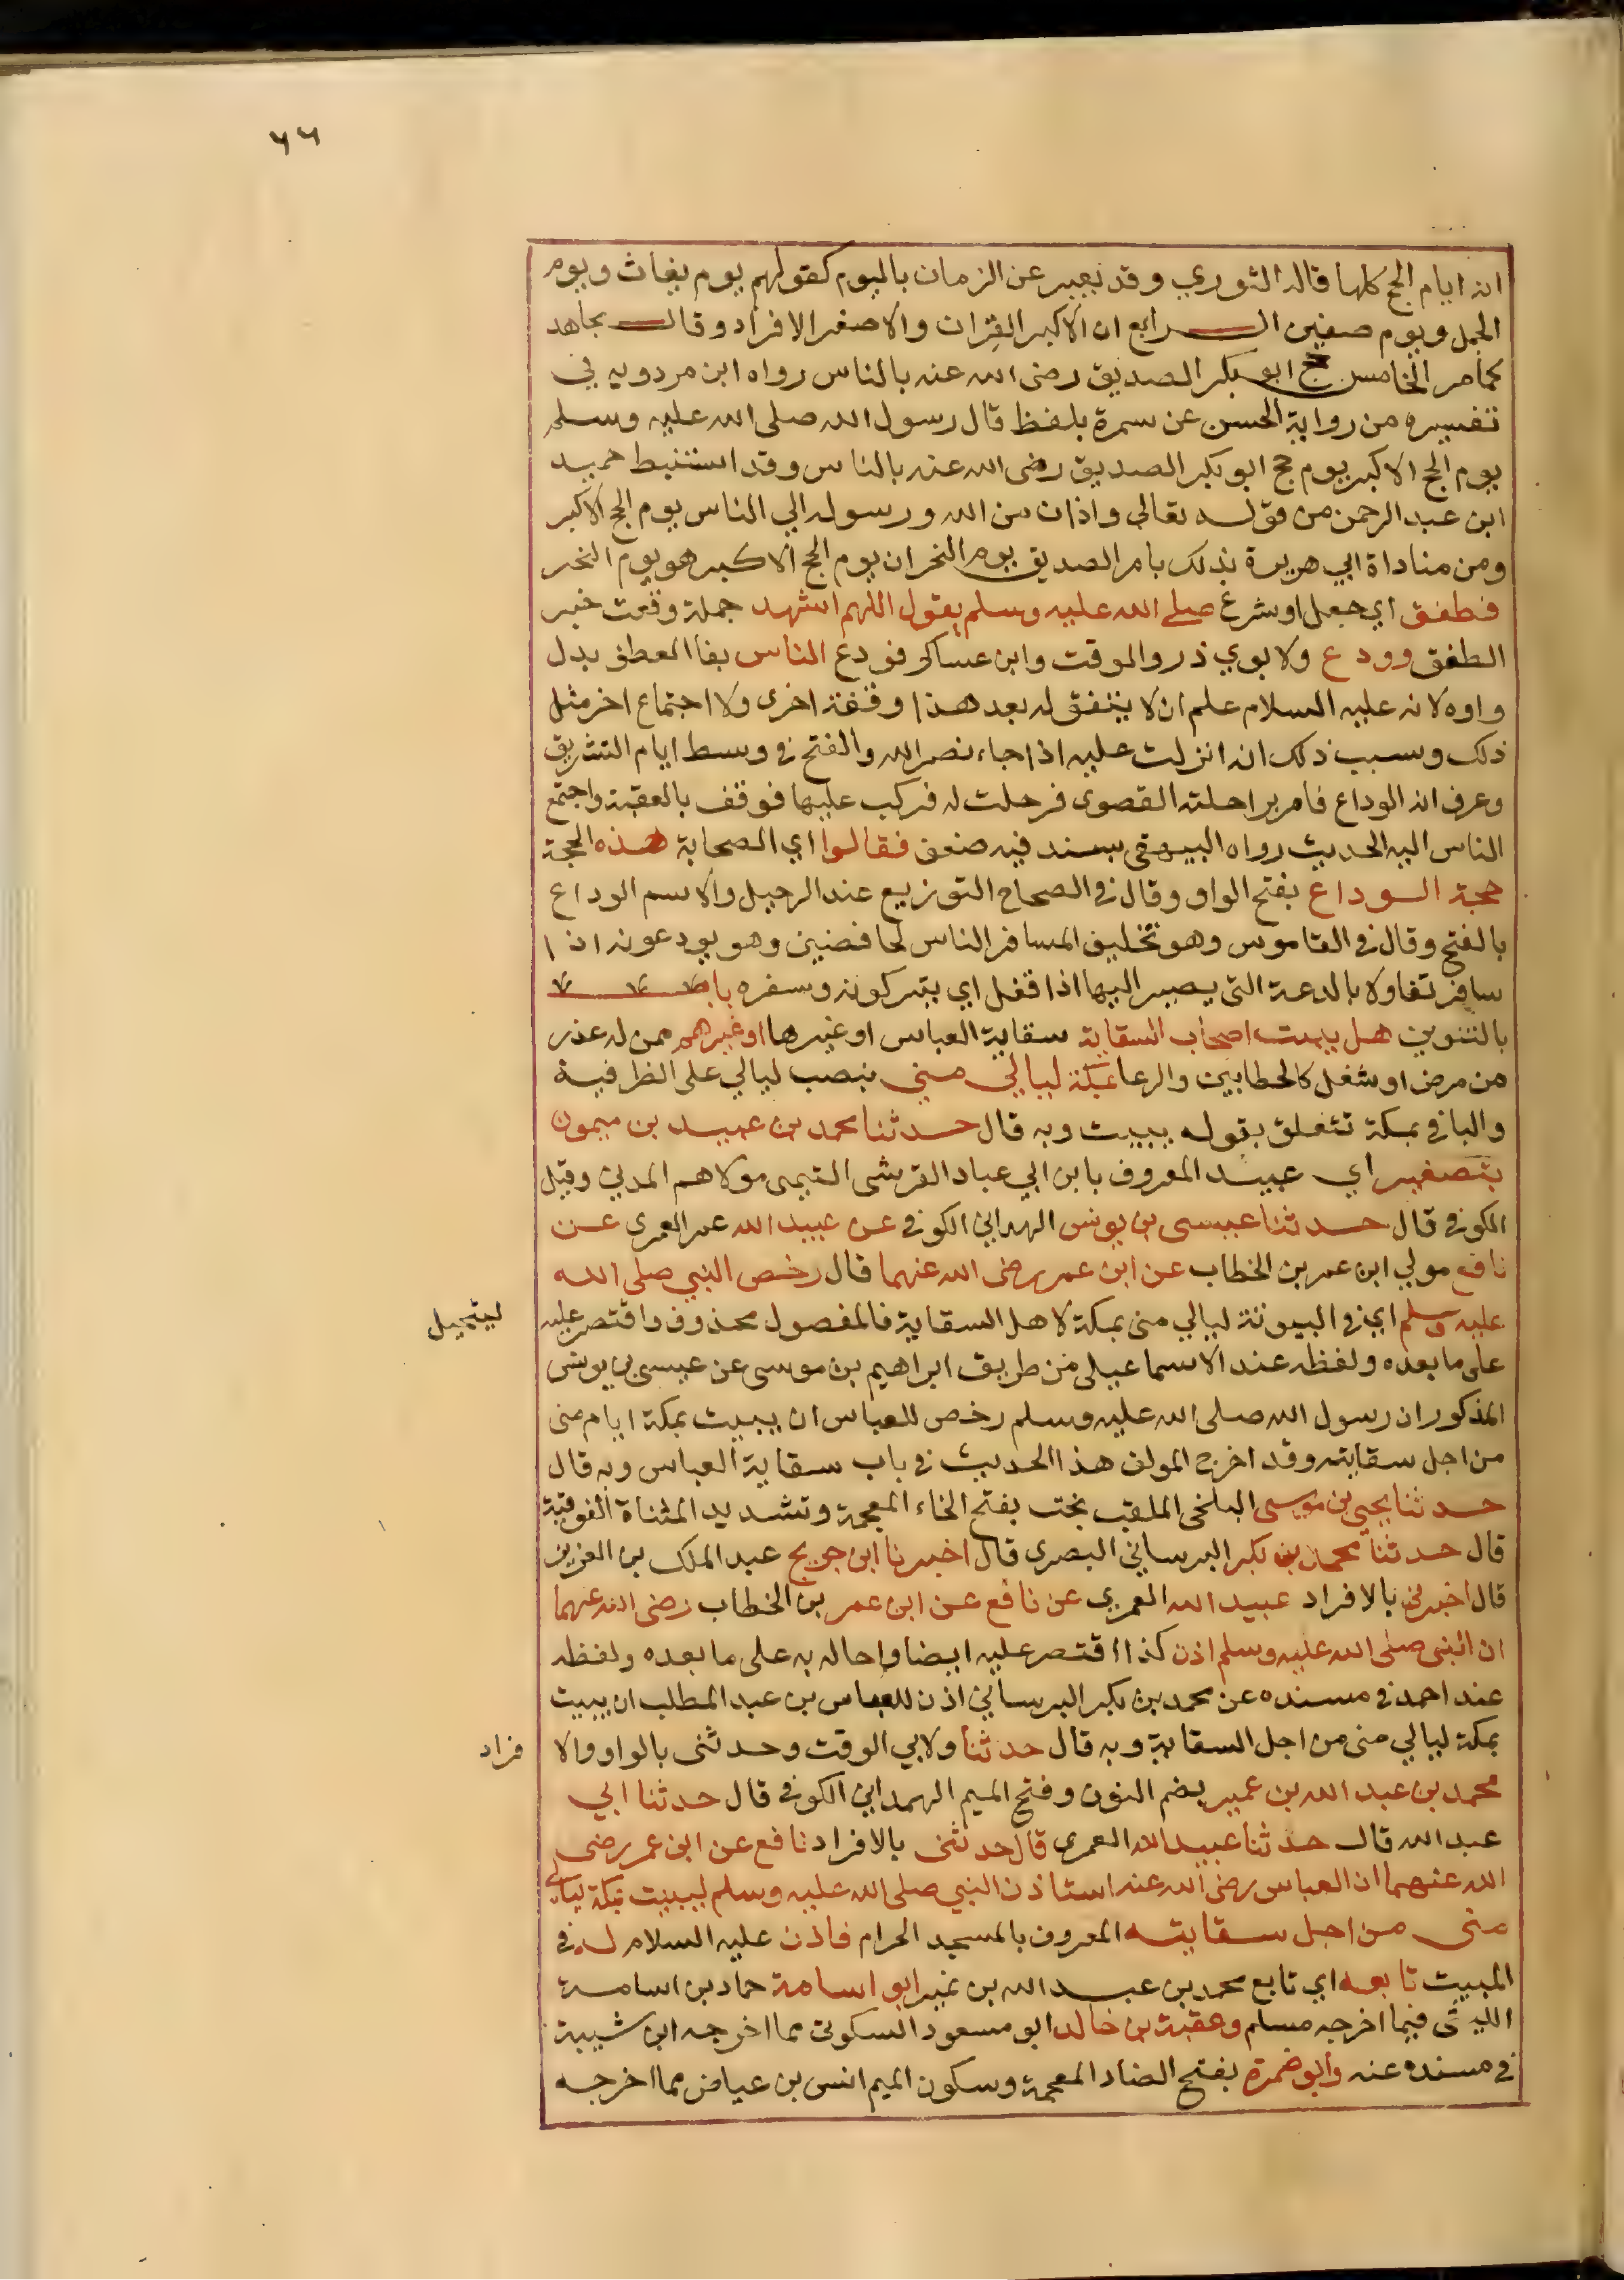 ٦٦
انه ايام الحج كلها قاله الثوري وقد يعبر عن الزمان باليوم كقولهم يوم بغاث ويوم
الجمل ويوم صفين الرابع ان الاكبر القران والاصغر الافراد وقال مجاهد
كمامر الخامس حج ابو بكر الصديق رضى الله عنه بالناس رواه ابن مردويه في
تفسيره من رواية الحسن عن سمرة بلفظ قال رسول الله صلى الله عليه وسلم
يوم الحج الاكبر يوم حج ابو بكر الصديق رضى الله عنه بالناس وقد استنبط حميد
ابن عبد الرحمن من قوله تعالى واذان من الله ورسوله الي الناس يوم الحج الاكبر
ومن مناداة ابي هريرة بذلك بامر الصديق يوم النحر ان يوم الحج الاكبر هو يوم النحر
فطفق اي جعل او شرع صلى الله عليه وسلم يقول اللهم اشهد جملة وقعت خبر
الطفق وودع ولابوي ذر والوقت وابن عساكر فودع الناس بفا العطف بدل
واوه لانه عليه السلام علم ان لا يتفق له بعد هذا وقفة اخرى ولا اجتماع اخر مثل
ذلك وسبب ذلك انه انزلت عليه اذا جاء نصر الله والفتح في وسط ايام التشريق
وعرف انه الوداع فامر براحلته القصوى فرحلت له فركب عليها فوقف بالعقبة واجتمع
الناس اليه الحديث رواه البيهقى بسند فيه ضعف فقالوا اي الصحابة هذه الحجة
حجة الوداع بفتح الواو وقال في الصحاح التوزيع عند الرحيل والاسم الوداع
بالفتح وقال في القاموس وهو تخليف المسافر الناس لحافضين وهو يودعونه اذا
سافر تفاولا بالدعة التى يصير اليها اذا قفل اي يتركونه وسفره باب
بالتنوين هل يبيت اصحاب السقاية سقاية العباس او غيرها او غيرهم ممن له عذر
من مرض او شغل كالحطابين والرعا بمكة ليالي منى بنصب ليالي على الظرفية
والبا في بمكة تتعلق بقوله يبيت وبه قال حدثنا محمد بن عبيد بن ميمون
بتصغير اي عبيد المعروف بابن ابي عباد القرشى التيمى مولاهم المدني وقيل
الكوفي قال حدثنا عيسى بن يونس الهمداني الكوفي عن عبيد الله عمر العمرى عن
نافع مولي ابن عمر بن الخطاب عن ابن عمر رضى الله عنهما قال رخص النبي صلى الله
عليه وسلم اي في البيوتة ليالي منى بمكة لاهل السقاية فالمفصول محذوف واقتصر عليه
على ما بعده ولفظه عند الاسماعيلى من طريق ابراهيم بن موسى عن عيسى بن يونس
المذكور ان رسول الله صلى الله عليه وسلم رخص للعباس ان يبيت بمكة ايام منى
من اجل سقايته وقد اخرج المولف هذا الحديث في باب سقاية العباس وبه قال
حدثنا يحيى بن موسى البلخى الملقب بخت بفتح الخاء المعجمة وتشديد المثناة الفوقية
قال حدثنا محمد بن بكر البرساني البصرى قال اخبرنا ابن جريج عبد الملك بن العزيز
قال اخبرني بالافراد عبيد الله العمري عن نافع عن ابن عمر بن الخطاب رضى الله عنهما
ان النبى صلى الله عليه وسلم اذن كذا اقتصر عليه ايضا واحاله به على ما بعده ولفظه
عند احمد في مسنده عن محمد بن بكر البرساني اذن للعباس بن عبد المطلب ان يبيت
بمكة ليالي منى من اجل السقاية وبه قال حدثنا ولابي الوقت وحدثنى بالواو والا
فراد
محمد بن عبد الله بن نمير بضم النون وفتح الميم الهمداني الكوفي قال حدثنا ابي
عبد الله قال حدثنا عبيد الله العمرى قال حدثنى بالافراد نافع عن ابن عمر رضى
الله عنهما ان العباس رضى الله عنه استاذن النبي صلى الله عليه وسلم ليبيت بمكة ليالي
منى من اجل سقايته المعروف بالمسجد الحرام فاذن عليه السلام له في
المبيت تابعه اي تابع محمد بن عبد الله بن نمير ابو اسامة حماد بن اسامة
الليثى فيما اخرجه مسلم وعقبة بن خالد ابو مسعود السكونى مما اخرجه ابن شيبة
في مسنده عنه وابو ضمرة بفتح الضاد المعجمة وسكون الميم انس بن عياض مما اخرجه